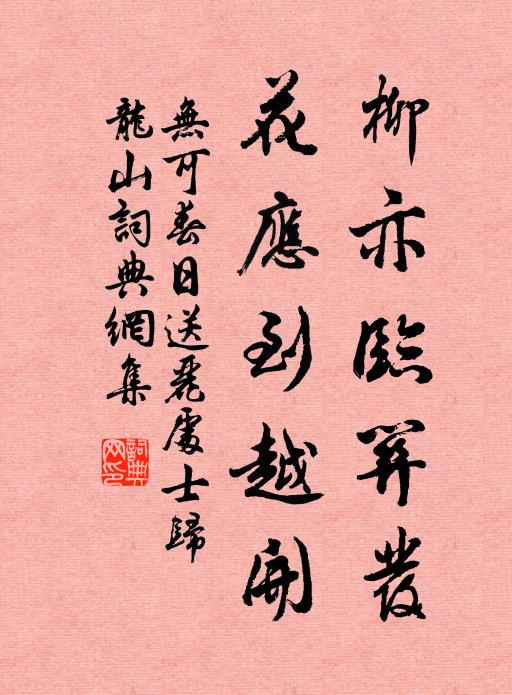 柳亦臨關發
花應到越開
無可春日送麗處士歸
龍山詞典網集
詞典網印